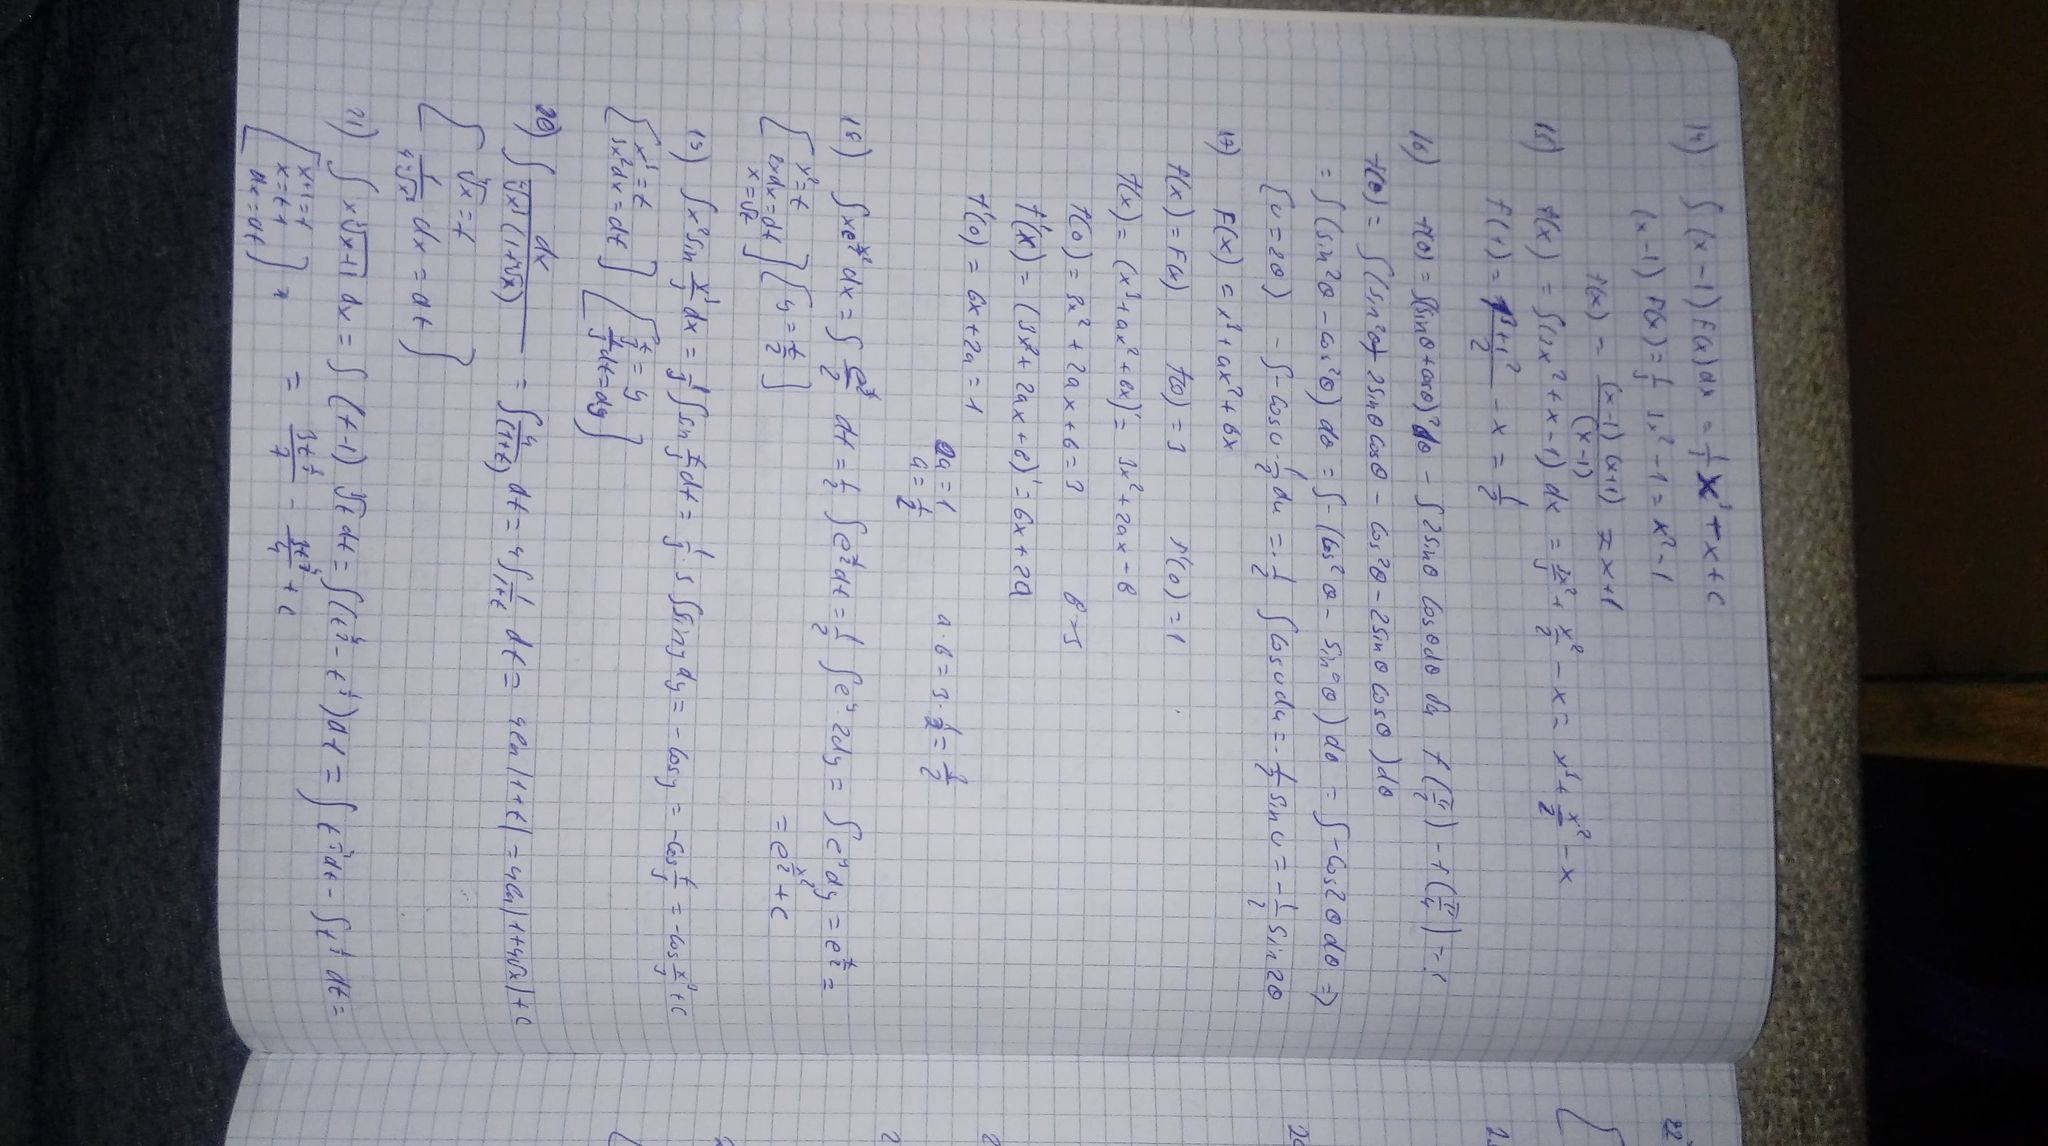 14) ∫(x-1)f(x)dx = 1/3 x³ - x + c
(x-1) f(x) = 1/3 3x² - 1 = x² - 1
f(x) = (x-1)(x+1)/(x-1) = x+1
15) f(x) = ∫(3x²+x-1)dx = 3x³/3 + x²/2 - x = x³ + x²/2 - x
f(1) = 1³+1²/2 - x = 1/2
16) f(θ) = ∫(sinθ+cosθ)²dθ - ∫2sinθ cosθdθ du f(π/2) - f(π/4) = ?
f(θ) = ∫(sin²θ+2sinθcosθ - cos²θ - 2sinθcosθ)dθ
= ∫(sin²θ - cos²θ)dθ = ∫-(cos²θ - sin²θ)dθ = ∫-cos2θdθ =>
[u=2θ] - ∫-cosu·1/2 du = -1/2 ∫cosudu = -1/2 sinu = -1/2 sin2θ
17) F(x) = x³+ax²+bx
f(x) = F(x) f(0) = 3 f'(0) = 1
f(x) = (x³+ax²+bx)' = 3x²+2ax-b
f(0) = 3x²+2ax+b = 3 b=3
f'(x) = (3x²+2ax+b)' = 6x+2a
f'(0) = 6x+2a = 1
2a = 1 a·b = 3·1/2 = 3/2
a = 1/2
18) ∫xe^(x²/2) dx = ∫ e^(t/2)/2 dt = 1/2 ∫e^(t/2)dt = 1/2 ∫e^y 2dy = ∫e^y dy = e^(t/2) =
[x²=t
2xdx=dt
x=√t] [y=t/2] = e^(x²/2) + c
19) ∫x²sin x³/3 dx = 1/3 ∫sin t/3 dt = 1/3·3 ∫siny dy = -cosy = -cos t/3 = -cos x³/3 + c
[x³=t
3x²dx=dt] [t/3 = y
1/3dt=dy]
20) ∫ dx/(⁴√x³(1+⁴√x)) = ∫ 4/(1+t) dt = 4∫ 1/(1+t) dt = 4ln|1+t| = 4ln|1+⁴√x|+c
[⁴√x = t
1/(4⁴√x³) dx = dt]
21) ∫x³√x+1 dx = ∫(t-1)³√t dt = ∫(t^(4/3) - t^(1/3))dt = ∫t^(4/3)dt - ∫t^(1/3) dt =
[x+1=t
x=t-1
dx=dt] = 3t^(7/3)/7 - 3t^(4/3)/4 + c
22